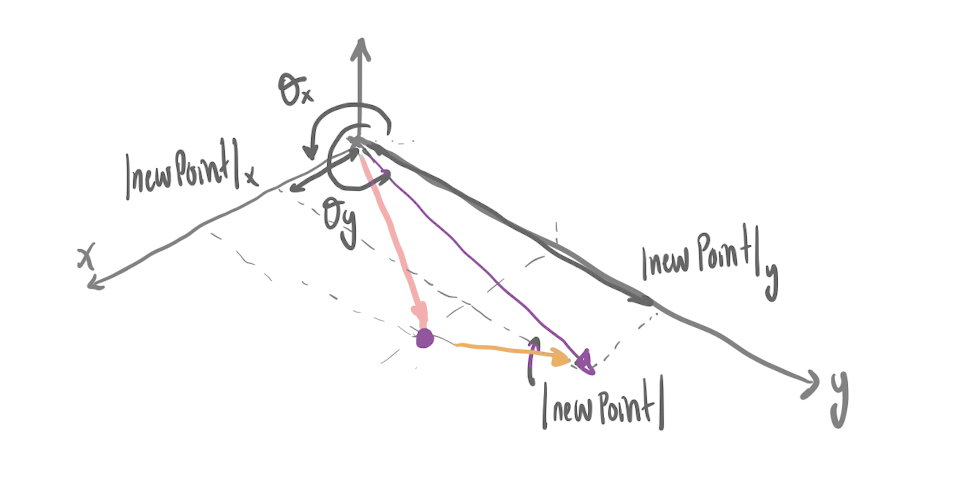 θx
|newPoint|x
θy
x
|newPoint|y
y
|newPoint|